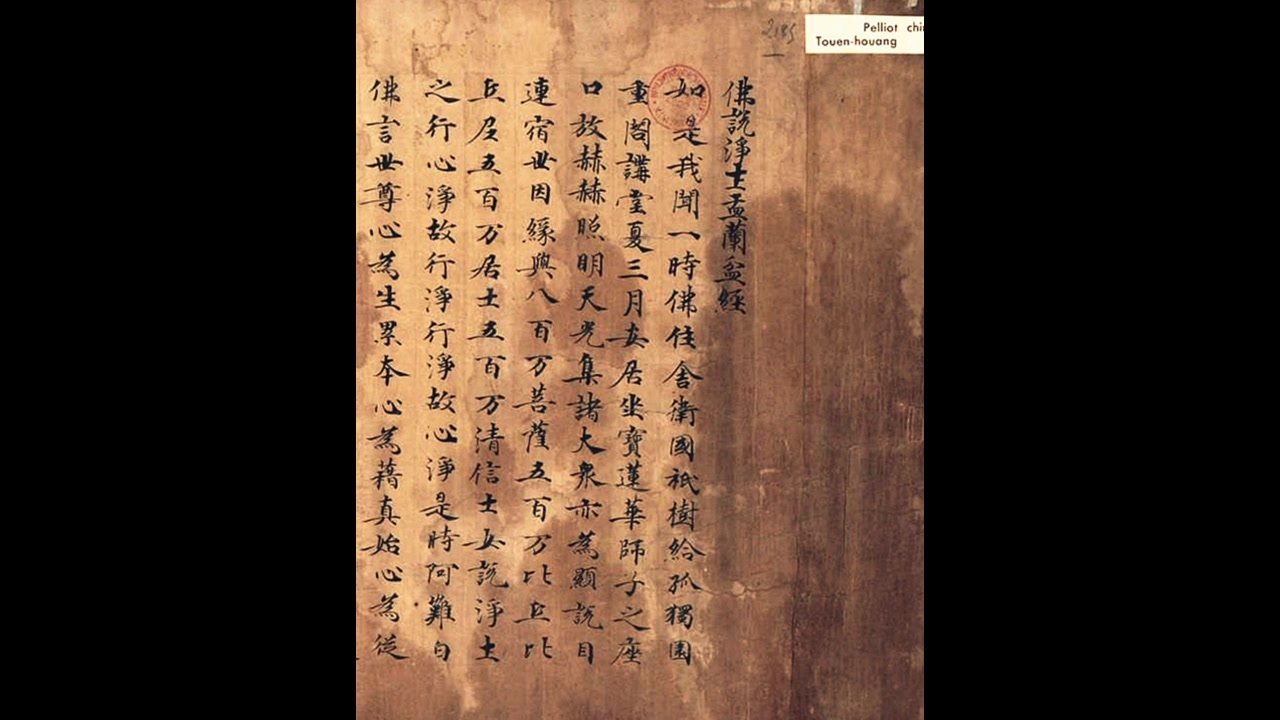 Pelliot chi
Touen-houang
2185
佛說淨土盂蘭盆經
如是我聞一時佛住舍衛國祇樹給孤獨園
重閣講堂夏三月安居坐寶蓮華師子之座
口放赫赫照明天光集諸大衆亦為顯說目
連宿世因緣與八百万菩薩五百万比丘比
丘尼五百万居士五百万清信士女說淨土
之行心淨故行淨行淨故心淨是時阿難白
佛言世尊心為生累本心為藉真始心為從